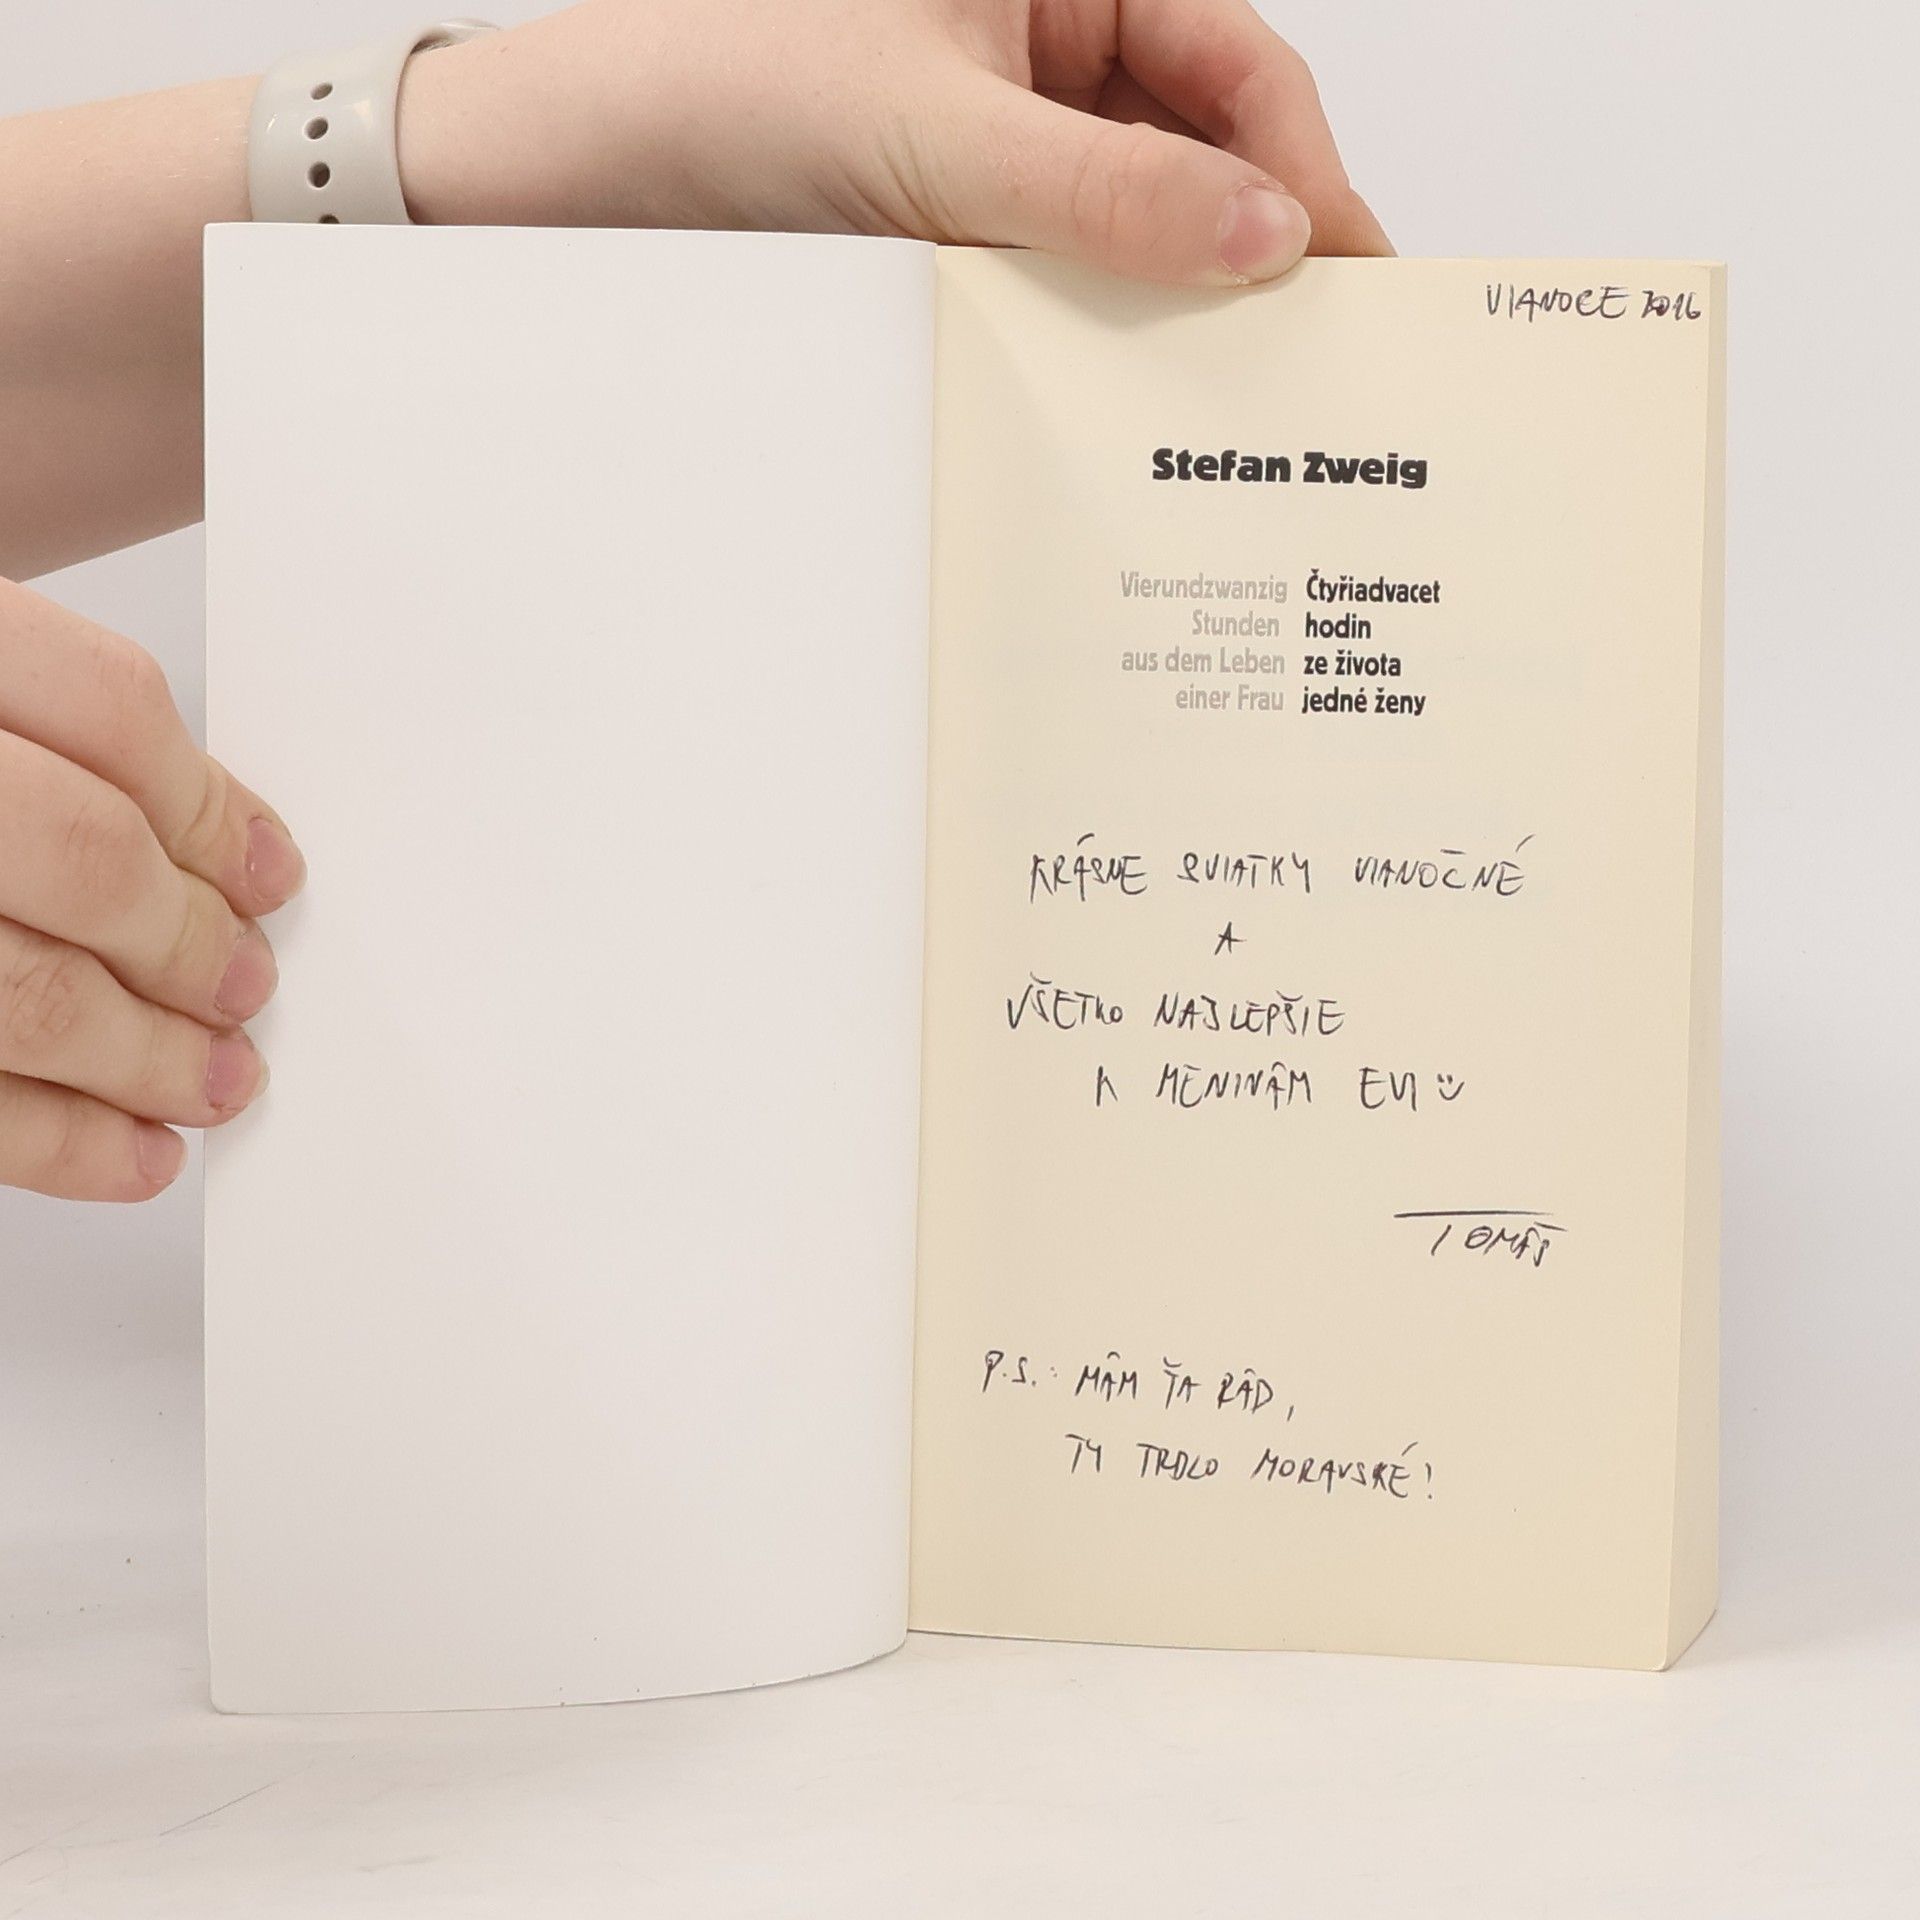 VIANOCE 2016
Stefan Zweig
Vierundzwanzig Čtyřiadvacet
Stunden hodin
aus dem Leben ze života
einer Frau jedné ženy
KRÁSNE SVIATKY VIANOČNÉ
A
VŠETKO NAJLEPŠIE
K MENINÁM EVI
TOMÁŠ
P.S.: MÁM ŤA RÁD,
TY TRDLO MORAVSKÉ!